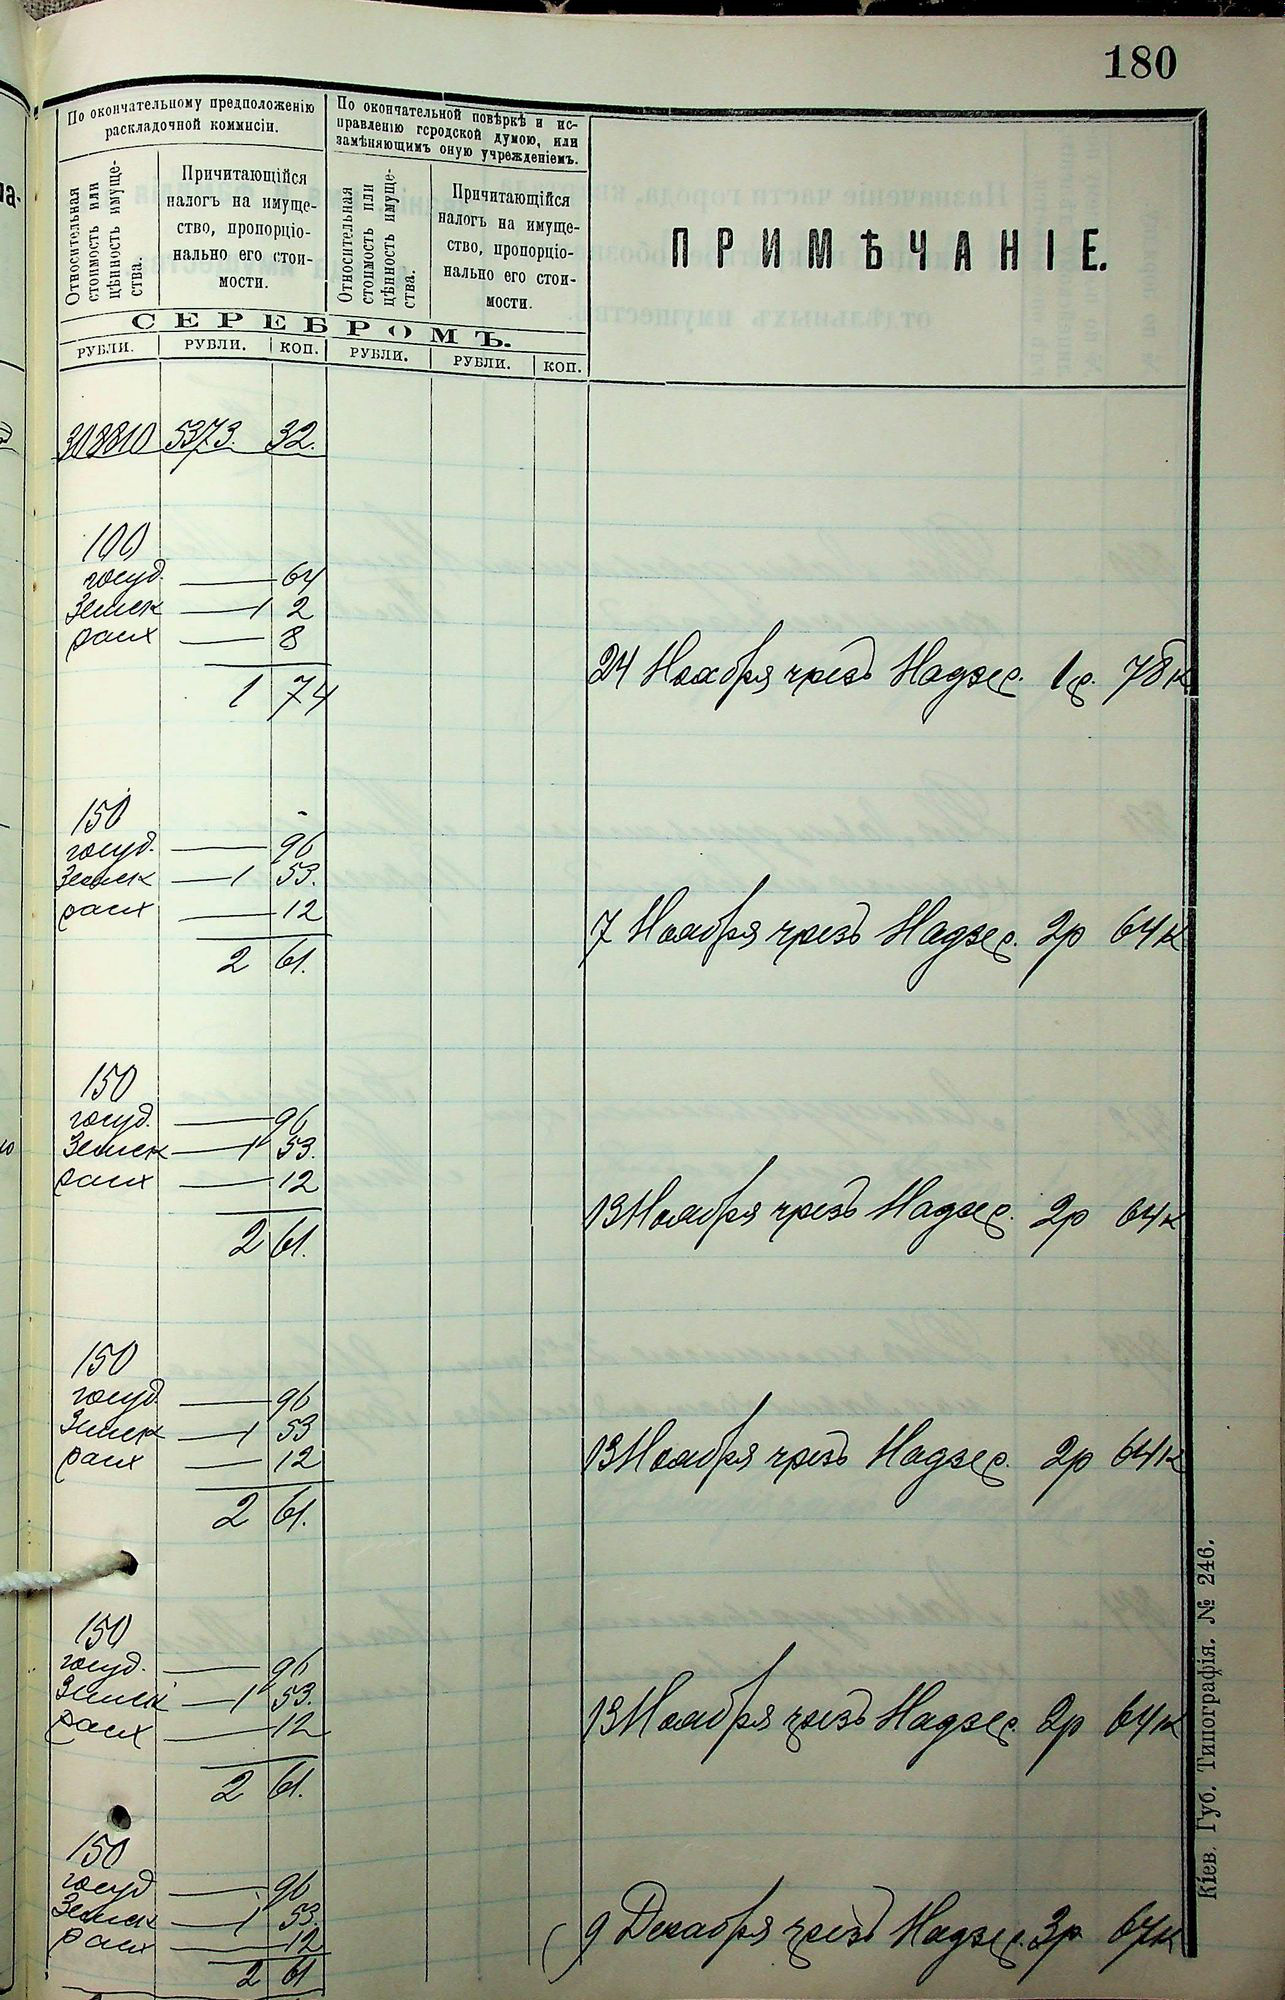 180
По окончательному предположенію
раскладочной коммисіи.
По окончательной повѣркѣ и ис-
правленію городской думою, или
замѣняющимъ оную учрежденіемъ.
Относительная
стоимость или
цѣнность имуще-
ства.
Причитающійся
налогъ на имуще-
ство, пропорціо-
нально его стои-
мости.
Относительная
стоимость или
цѣнность имуще-
ства.
Причитающійся
налогъ на имуще-
ство, пропорціо-
нально его стои-
мости.
ПРИМѢЧАНІЕ.
СЕРЕБРОМЪ.
РУБЛИ. РУБЛИ. КОП. РУБЛИ. РУБЛИ. КОП.
308810 5373. 32.
100
госуд. — 64
Земск — 1 2
расх — 8
1 74
24 Ноября чрезъ Надзер. 1р. 78к
150
госуд. — 96
Земск — 1 53.
расх — 12
2 61.
7 Ноября чрезъ Надзер. 2р 64к
150
госуд. — 96
Земск — 1 53.
расх — 12
2 61.
13 Ноября чрезъ Надзер. 2р 64к
150
госуд. — 96
Земск — 1 53
расх — 12
2 61.
13 Ноября чрезъ Надзер. 2р 64к
150
госуд. — 96
Земск — 1 53.
расх — 12
2 61.
13 Ноября чрезъ Надзер. 2р 64к
150
госуд — 96
Земск — 1 53.
расх — 12
2 61
9 Декабря чрезъ Надзер. 3р 67к
Кіев. Губ. Типографія. № 246.